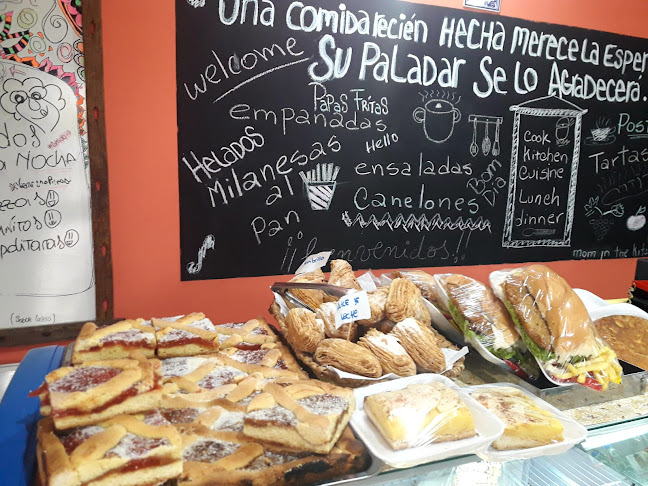 Una comida recién HECHA merece La Esper
Su Paladar Se Lo Agradecerá.
welcome
Papas Fritas
empanadas
Hello
HeLados
Milanesas
al
Pan
ensaladas
Canelones
Bom
Dia
¡¡bienvenidos!!
Cook
Kitchen
Cuisine
Lunch
dinner
Post
Tartas
mom in the kit
dos
a Nocha
DULCE de
LECHE